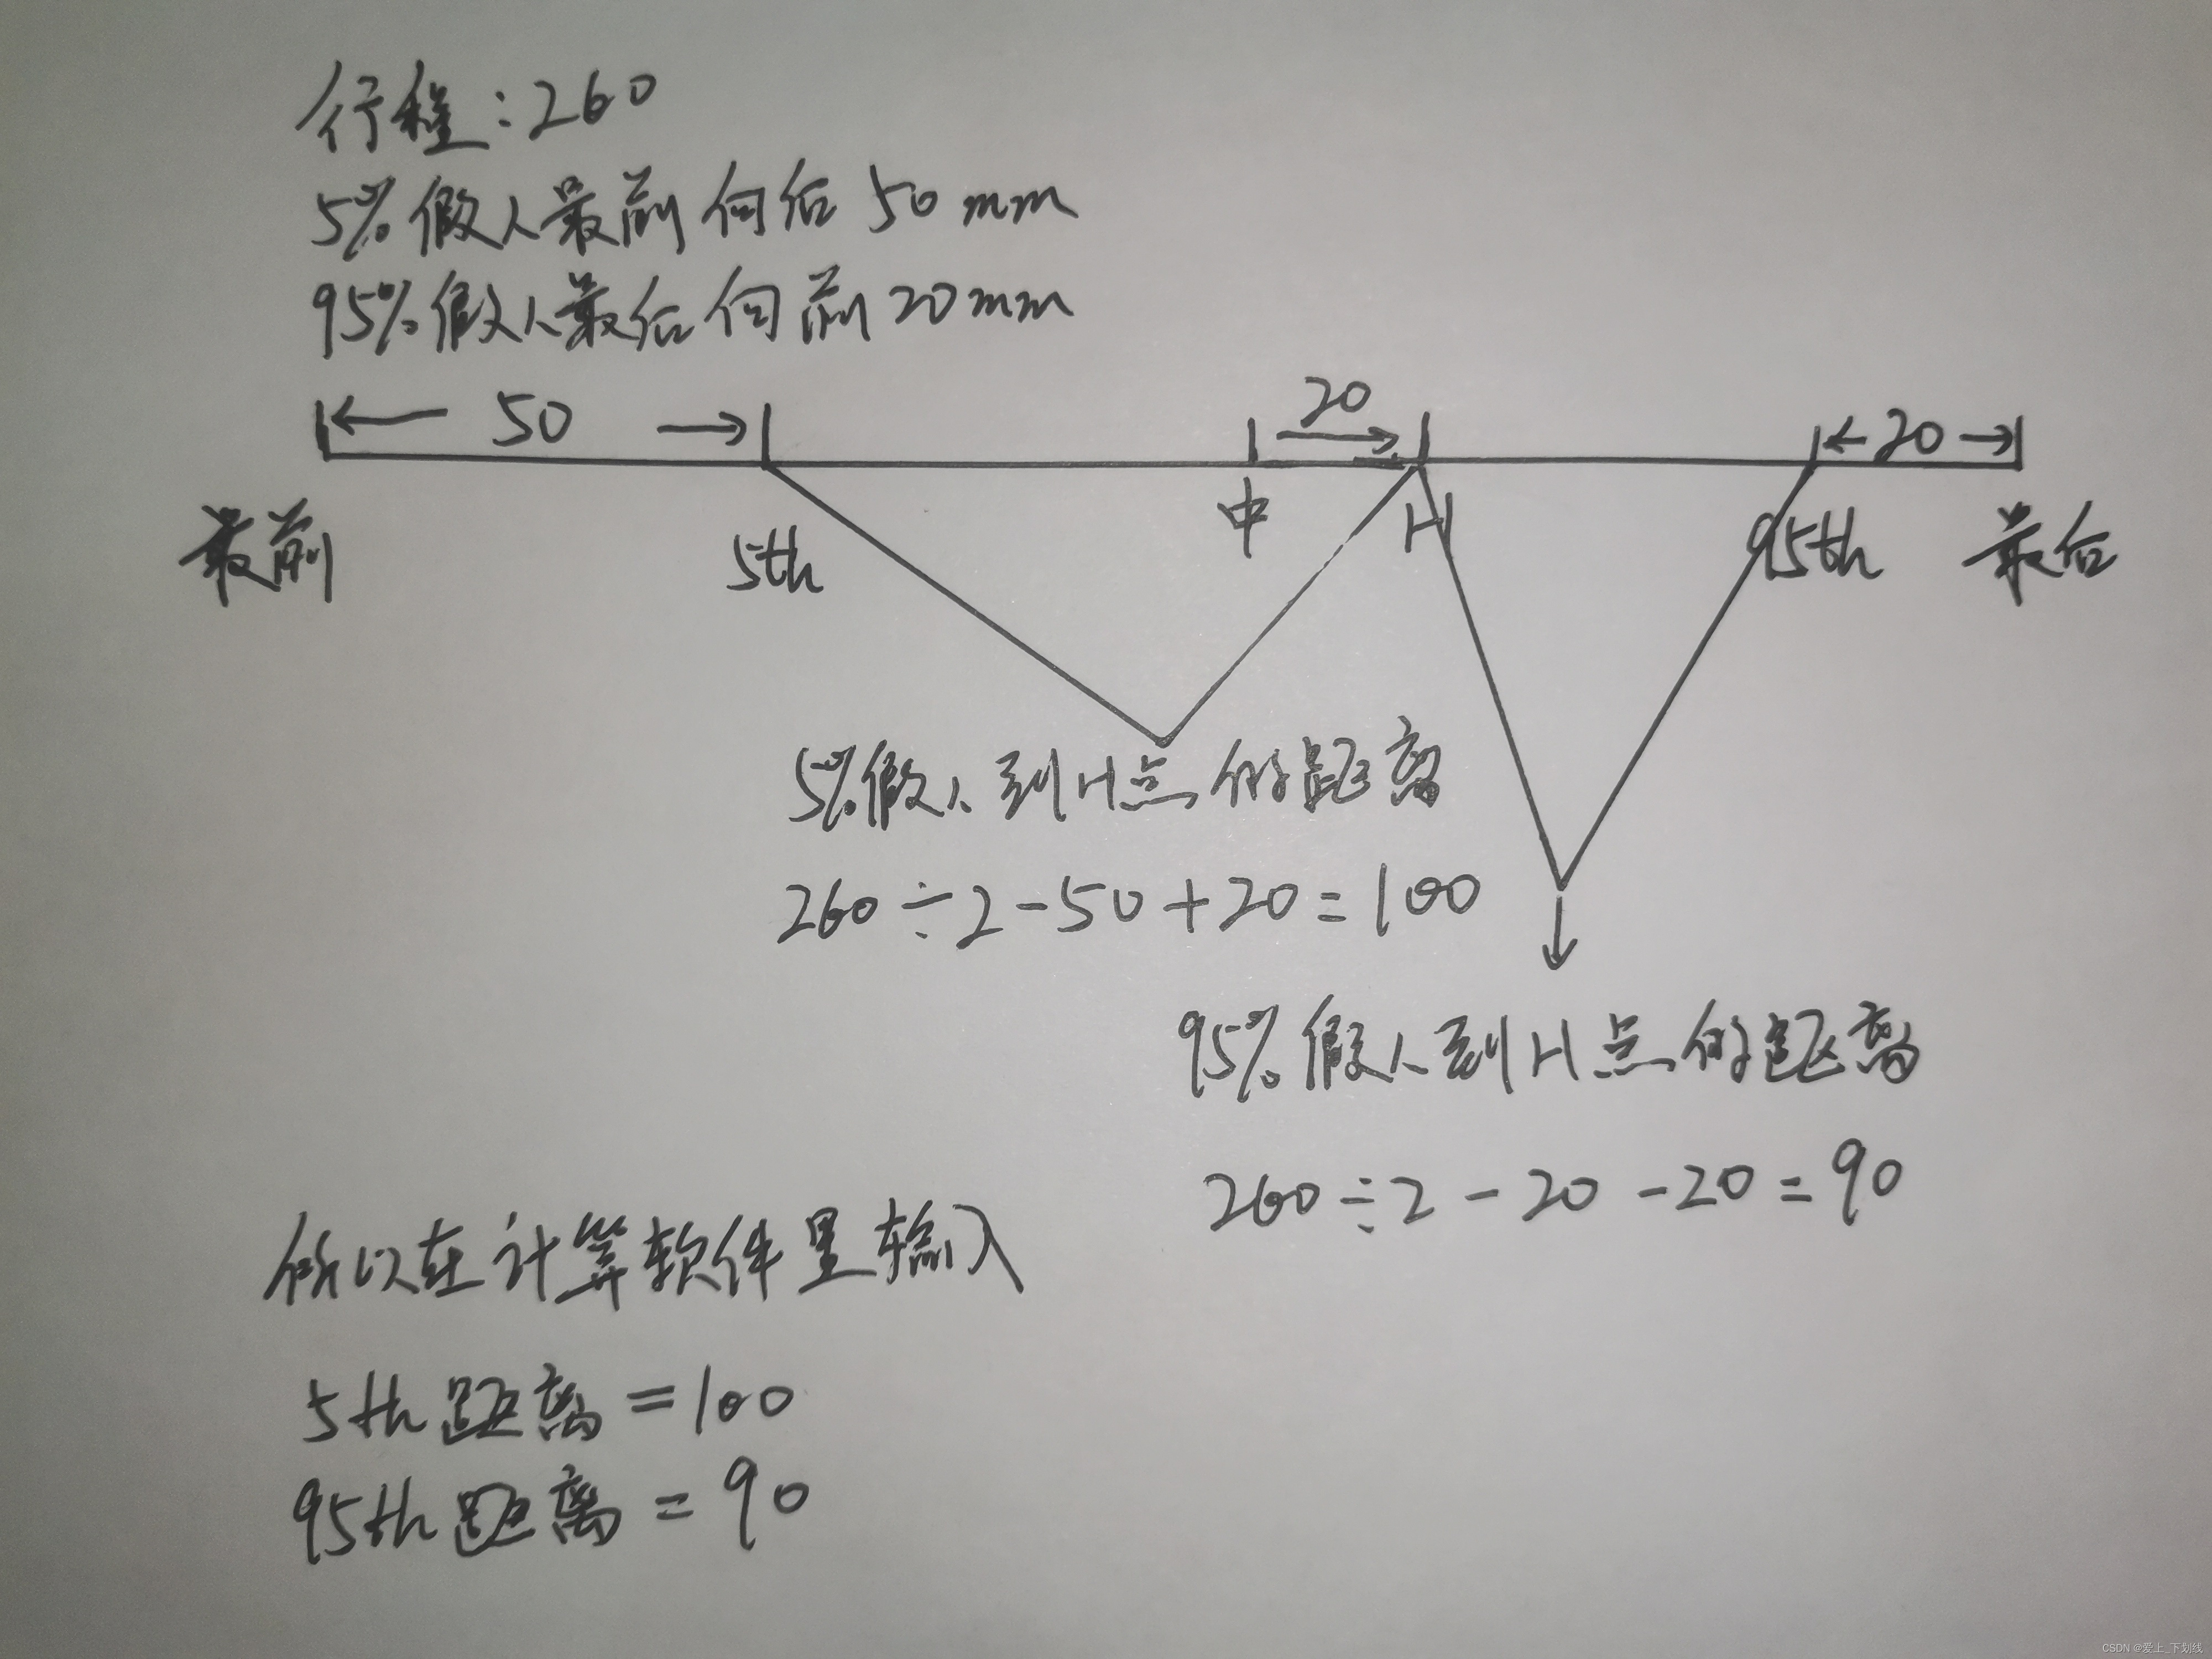 行程：260
5%假人最前向后50mm
95%假人最后向前20mm
50
20
20
最前
5th
中
H
95th
最后
5%假人到H点的距离
260÷2-50+20=100
95%假人到H点的距离
260÷2-20-20=90
所以在计算软件里输入
5th距离=100
95th距离=90
CSDN @爱上_下划线